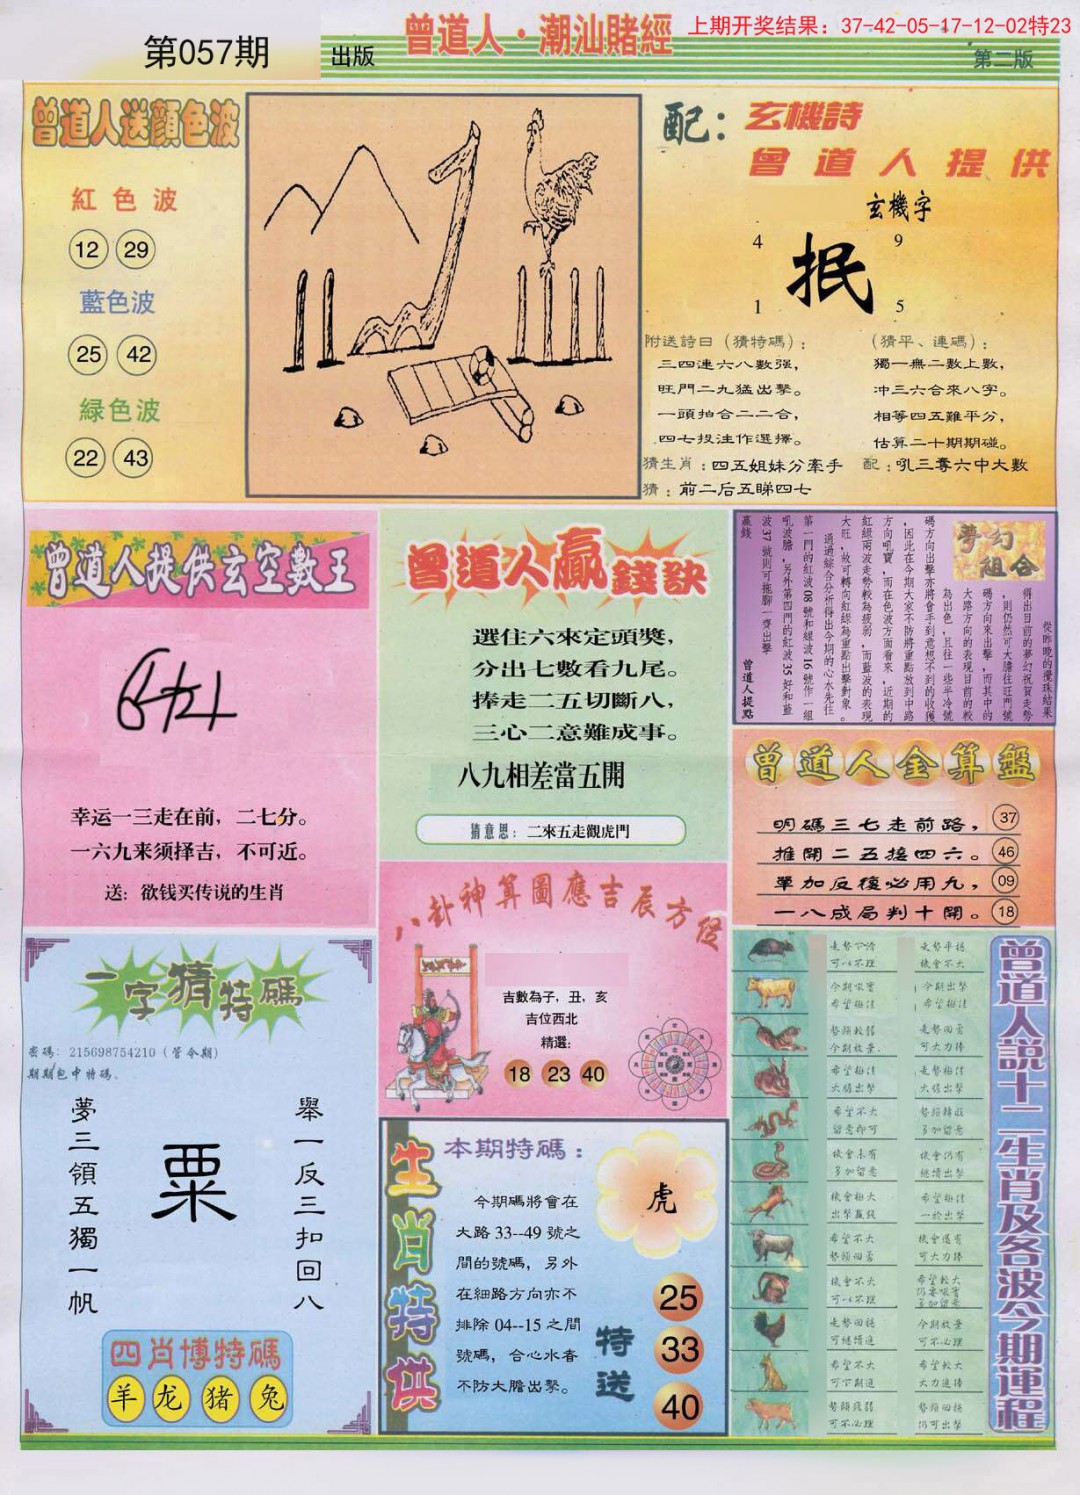 上期开奖结果：37-42-05-17-12-02特23
第057期
出版
曾道人·潮汕賭經
第二版
曾道人送顏色波
紅色波
12 29
藍色波
25 42
緑色波
22 43
配：玄機詩
曾道人提供
玄機字
4 9
抿
1 5
附送詩曰（猜特碼）：
三四連六八數强，
旺門二九猛出擊。
一頭拍合二二合，
四七投注作選擇。
（猜平、連碼）：
獨一無二數上數，
冲三六合來八字。
相等四五難平分，
估算二十期期碰。
猜生肖：四五姐妹分牽手
配：吼三奪六中大數
猜：前二后五睇四七
曾道人提供玄空數王
幸运一三走在前，二七分。
一六九来须择吉，不可近。
送：欲钱买传说的生肖
曾道人贏錢訣
選住六來定頭獎，
分出七數看九尾。
捧走二五切斷八，
三心二意難成事。
八九相差當五開
猜意思：二來五走觀虎門
夢幻組合
從昨晚的攪珠結果
得出目前的夢幻祝賀走勢
，則仍然可大膽往旺門號
碼方向來出擊，而其中的
大路方向的表現目前的較
為出色，且往一些半冷號
碼方向出擊亦將會手到意想不到的收獲
，因此在今期大家不防將重點放到中路
方向吼寶，而在色波方面看來，近期的
紅緑兩波走勢較為疲弱，而藍波的表現
大旺，故可轉向紅緑為重點出擊對象。
通過綜合分析得出今期的心水先往
第一門的紅波08號和緑波16號作一組
吼波膽，另外第四門的紅波35好和藍
波37號則可拖腳一齊出擊
贏錢
曾道人提點
曾道人金算盤
明碼三七走前路，37
推開二五接四六。46
單加反復必用九，09
一八成局判十開。18
一字猜特碼
密碼：215698754210（管令期）
期期包中特碼。
夢三領五獨一帆
粟
舉一反三扣回八
四肖博特碼
羊 龙 猪 兔
八卦神算圖應吉辰方位
吉數為子，丑，亥
吉位西北
精選：
18 23 40
生肖特供
本期特碼：
今期碼將會在
大路33--49號之
間的號碼，另外
在細路方向亦不
排除04--15之間
號碼，合心水春
不防大膽出擊。
虎
特送
25
33
40
曾道人説十二生肖及各波今期運程
可以不理
機會不大
今期出擊
今期放棄
可大力捧
大膽出擊
大膽出擊
希望不大
留意即可
多加留意
機會未有
多加留意
機會仍有
繼續出擊
機會極大
出擊贏錢
希望不大
機會還有
可大力捧
機會不大
希望較大
多加留意
可繼續追
今期放棄
可不必理
希望不大
希望較大
大力追捧
可不必理
仍可出擊